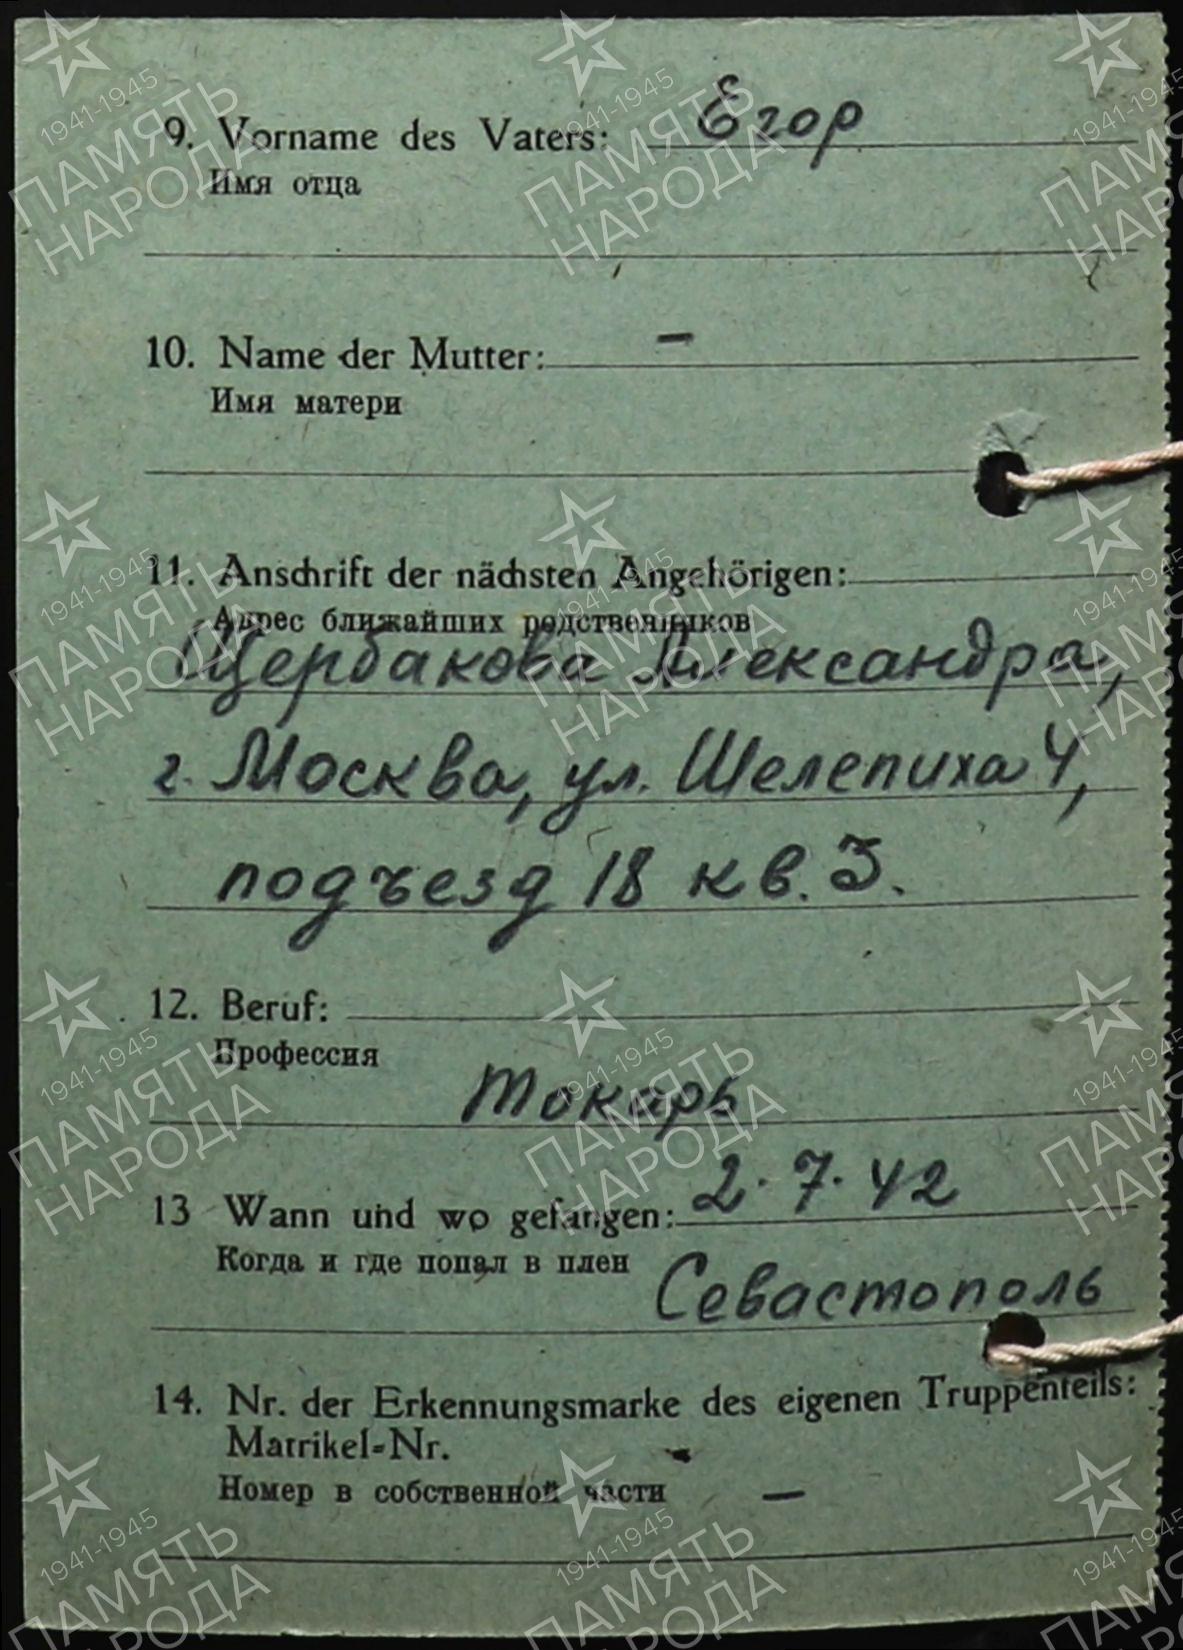 9. Vorname des Vaters: Егор
Имя отца
10. Name der Mutter: –
Имя матери
11. Anschrift der nächsten Angehörigen:
Адрес ближайших родственников
Щербакова Александра,
г. Москва, ул. Шелепиха 4,
подъезд 18 кв. 3.
12. Beruf:
Профессия
Токарь
13 Wann und wo gefangen: 2·7·42
Когда и где попал в плен
Севастополь
14. Nr. der Erkennungsmarke des eigenen Truppenteils:
Matrikel-Nr.
Номер в собственной части –
1941-1945
ПАМЯТЬ
НАРОДА